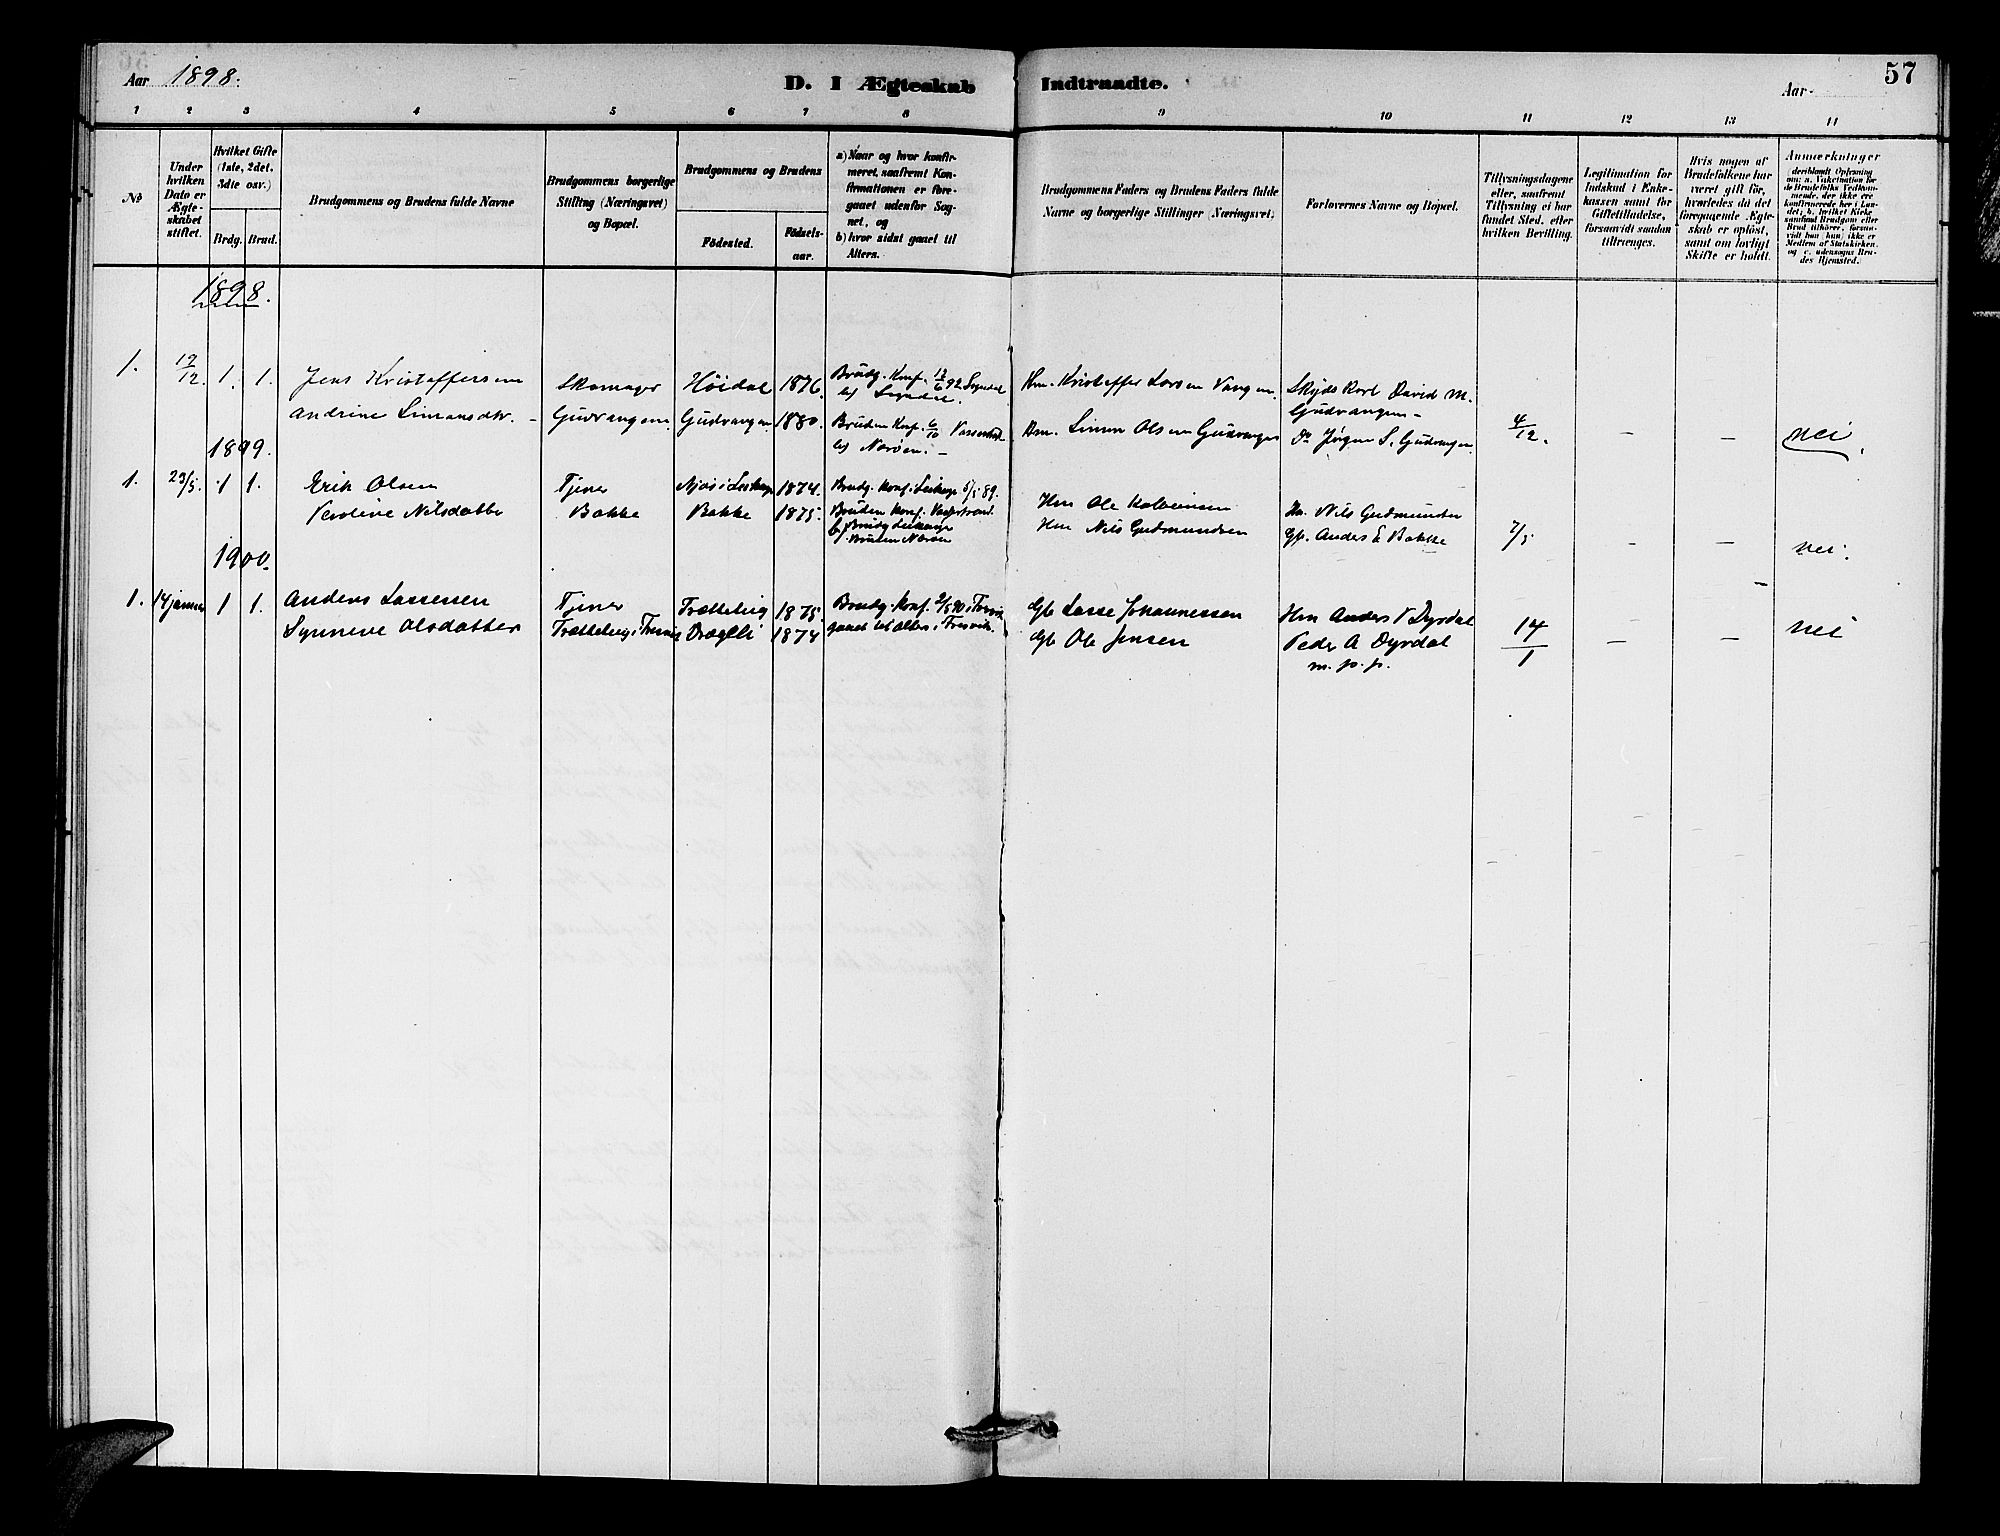 Aar 1898.
D. I Ægteskab Indtraadte.
Aar
57
1 2 3 4 5 6 7 8 9 10 11 12 13 11
No
Under hvilken Dato er Ægteskabet stiftet.
Hvilket Gifte (1ste, 2det, 3dte osv.)
Brdg. Brud.
Brudgommens og Brudens fulde Navne
Brudgommens borgerlige Stilling (Næringsvei) og Bopæl.
Brudgommens og Brudens
Födested.
Födselsaar.
a) Naar og hvor konfirmeret, saafremt Konfirmationen er foregaaet udenfor Sognet, og
b) hvor sidst gaaet til Alters.
Brudgommens Faders og Brudens Faders fulde Navne og borgerlige Stillinger (Næringsvei).
Forlovernes Navne og Bopæl.
Tillysningsdagene eller, saafremt Tillysning ei har fundet Sted, efter hvilken Bevilling.
Legitimation for Indskud i Enkekassen samt for Giftetilladelse, forsaavidt saadan tiltrænges.
Hvis nogen af Brudefolkene har været gift før, hvorledes da det foregaaende Ægteskab er opløst, samt om lovligt Skifte er holdt.
Anmærkninger
1898.
1. 19/12. 1. 1. Jens Kristoffersen Skomager Höidal 1876. Brudg. Konf. 12/6 92 Sogndal Hm. Kristoffer Larsen Vangen Skyds Karl David M. Gudvangen
Andrine Simonsdtr. Gudvangen Gudvangen 1880. Bruden Konf. 6/10 b) Nærøen. Hm. Simon Olsen Gudvangen Do Jørgen S. Gudvangen 4/12. – – nei
1899.
1. 29/5. 1 1. Erik Olsen Tjener Njøs i Leikange 1874. Brudg. Konf. i Leikange 5/5 89. Hm Ole Kolbeinsen Hm. Nils Gudmundsen
Peroline Nilsdatter Bakke Bakke 1875. Bruden Konf. b/ Brudg Leikange Bruden Nærøen Hm Nils Gudmundsen Gp. Anders E Bakke 7/5 – – nei.
1900.
1. 14 januar 1 1. Anders Lassesen Tjener Trætteberg 1875. Brudg. Konf. 2/5 90 i Fresvik Gb Lasse Johannessen Hm Anders P Dyrdal
Synneve Olsdatter Trætteberg i Fresvik Drægli 1874 gaaet til Alters i Fresvik. Gb Ole Jensen Peder A Dyrdal m. p. p. 14/1 – – nei